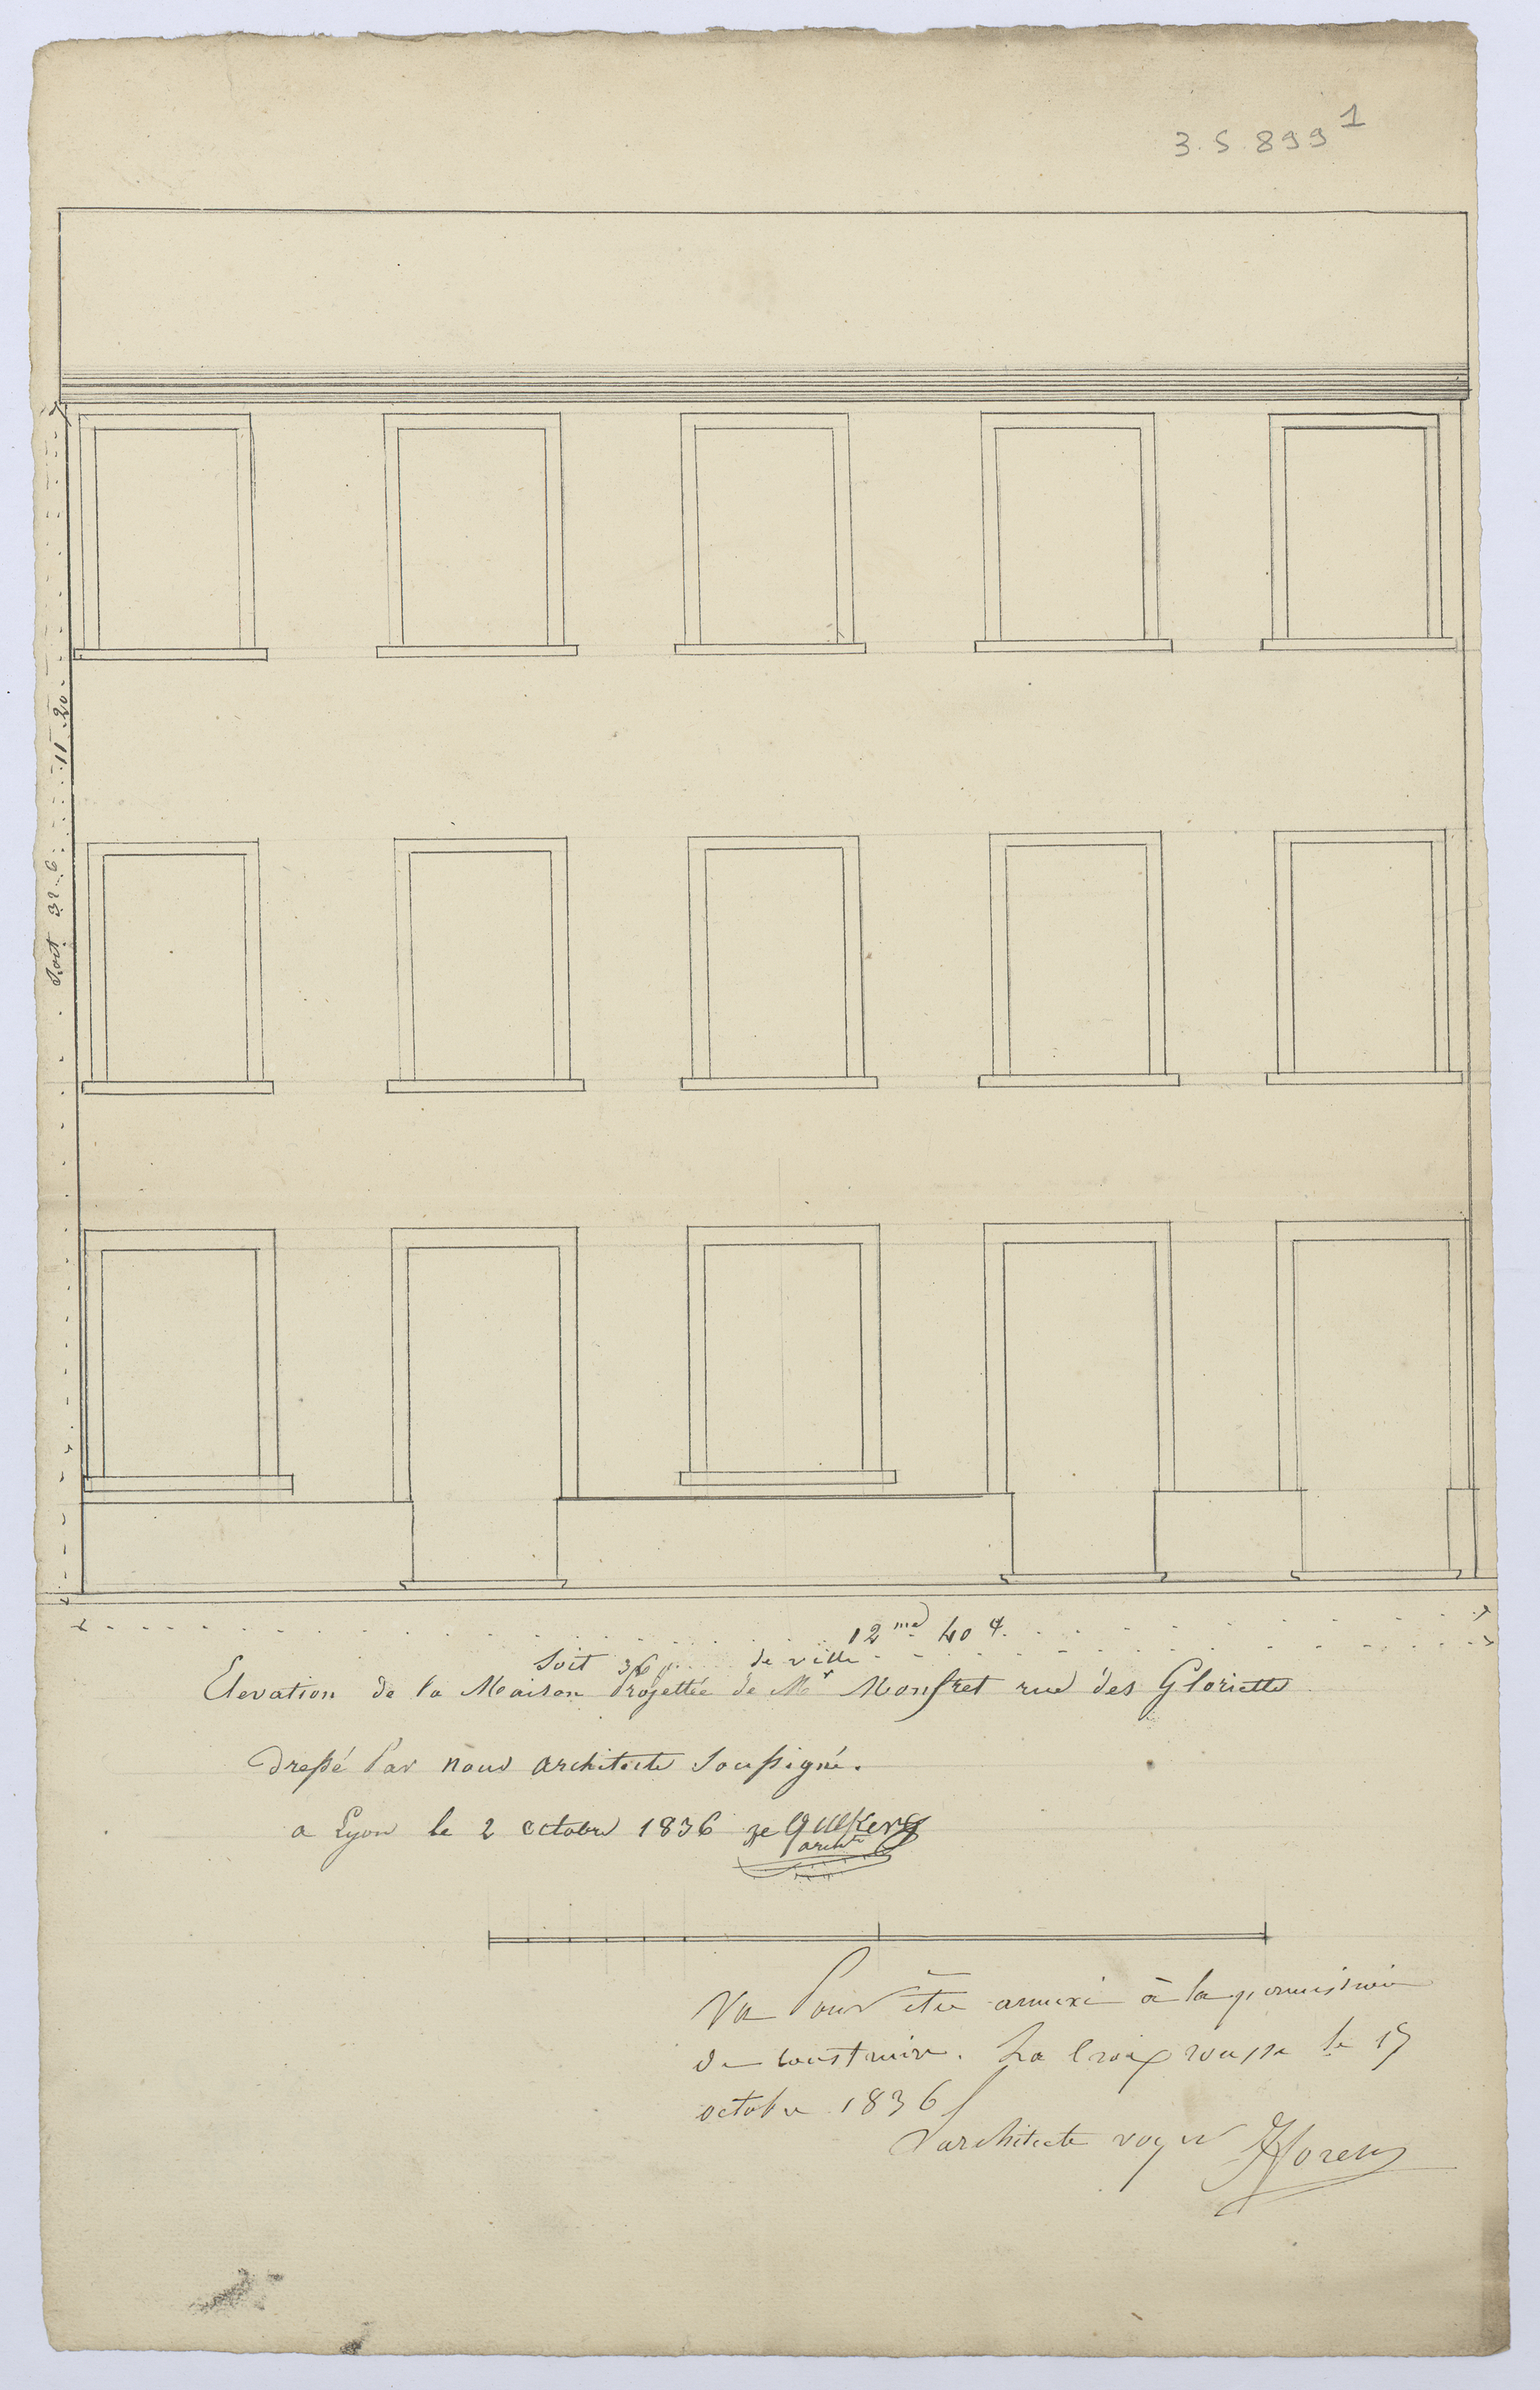 3. S. 899 1
11. 20
Soit 32. 6
12 me 40 c.
Soit 36 p. de ville
Elevation de la Maison Projettée de Mr Monfret rue des Gloriette
Dressé Par nous architecte Soussigné.
a Lyon le 2 octobre 1836
archte
Vu Pour être annexé à la permission
de construire. La Croix rousse le 15
octobre 1836
L'architecte voyer